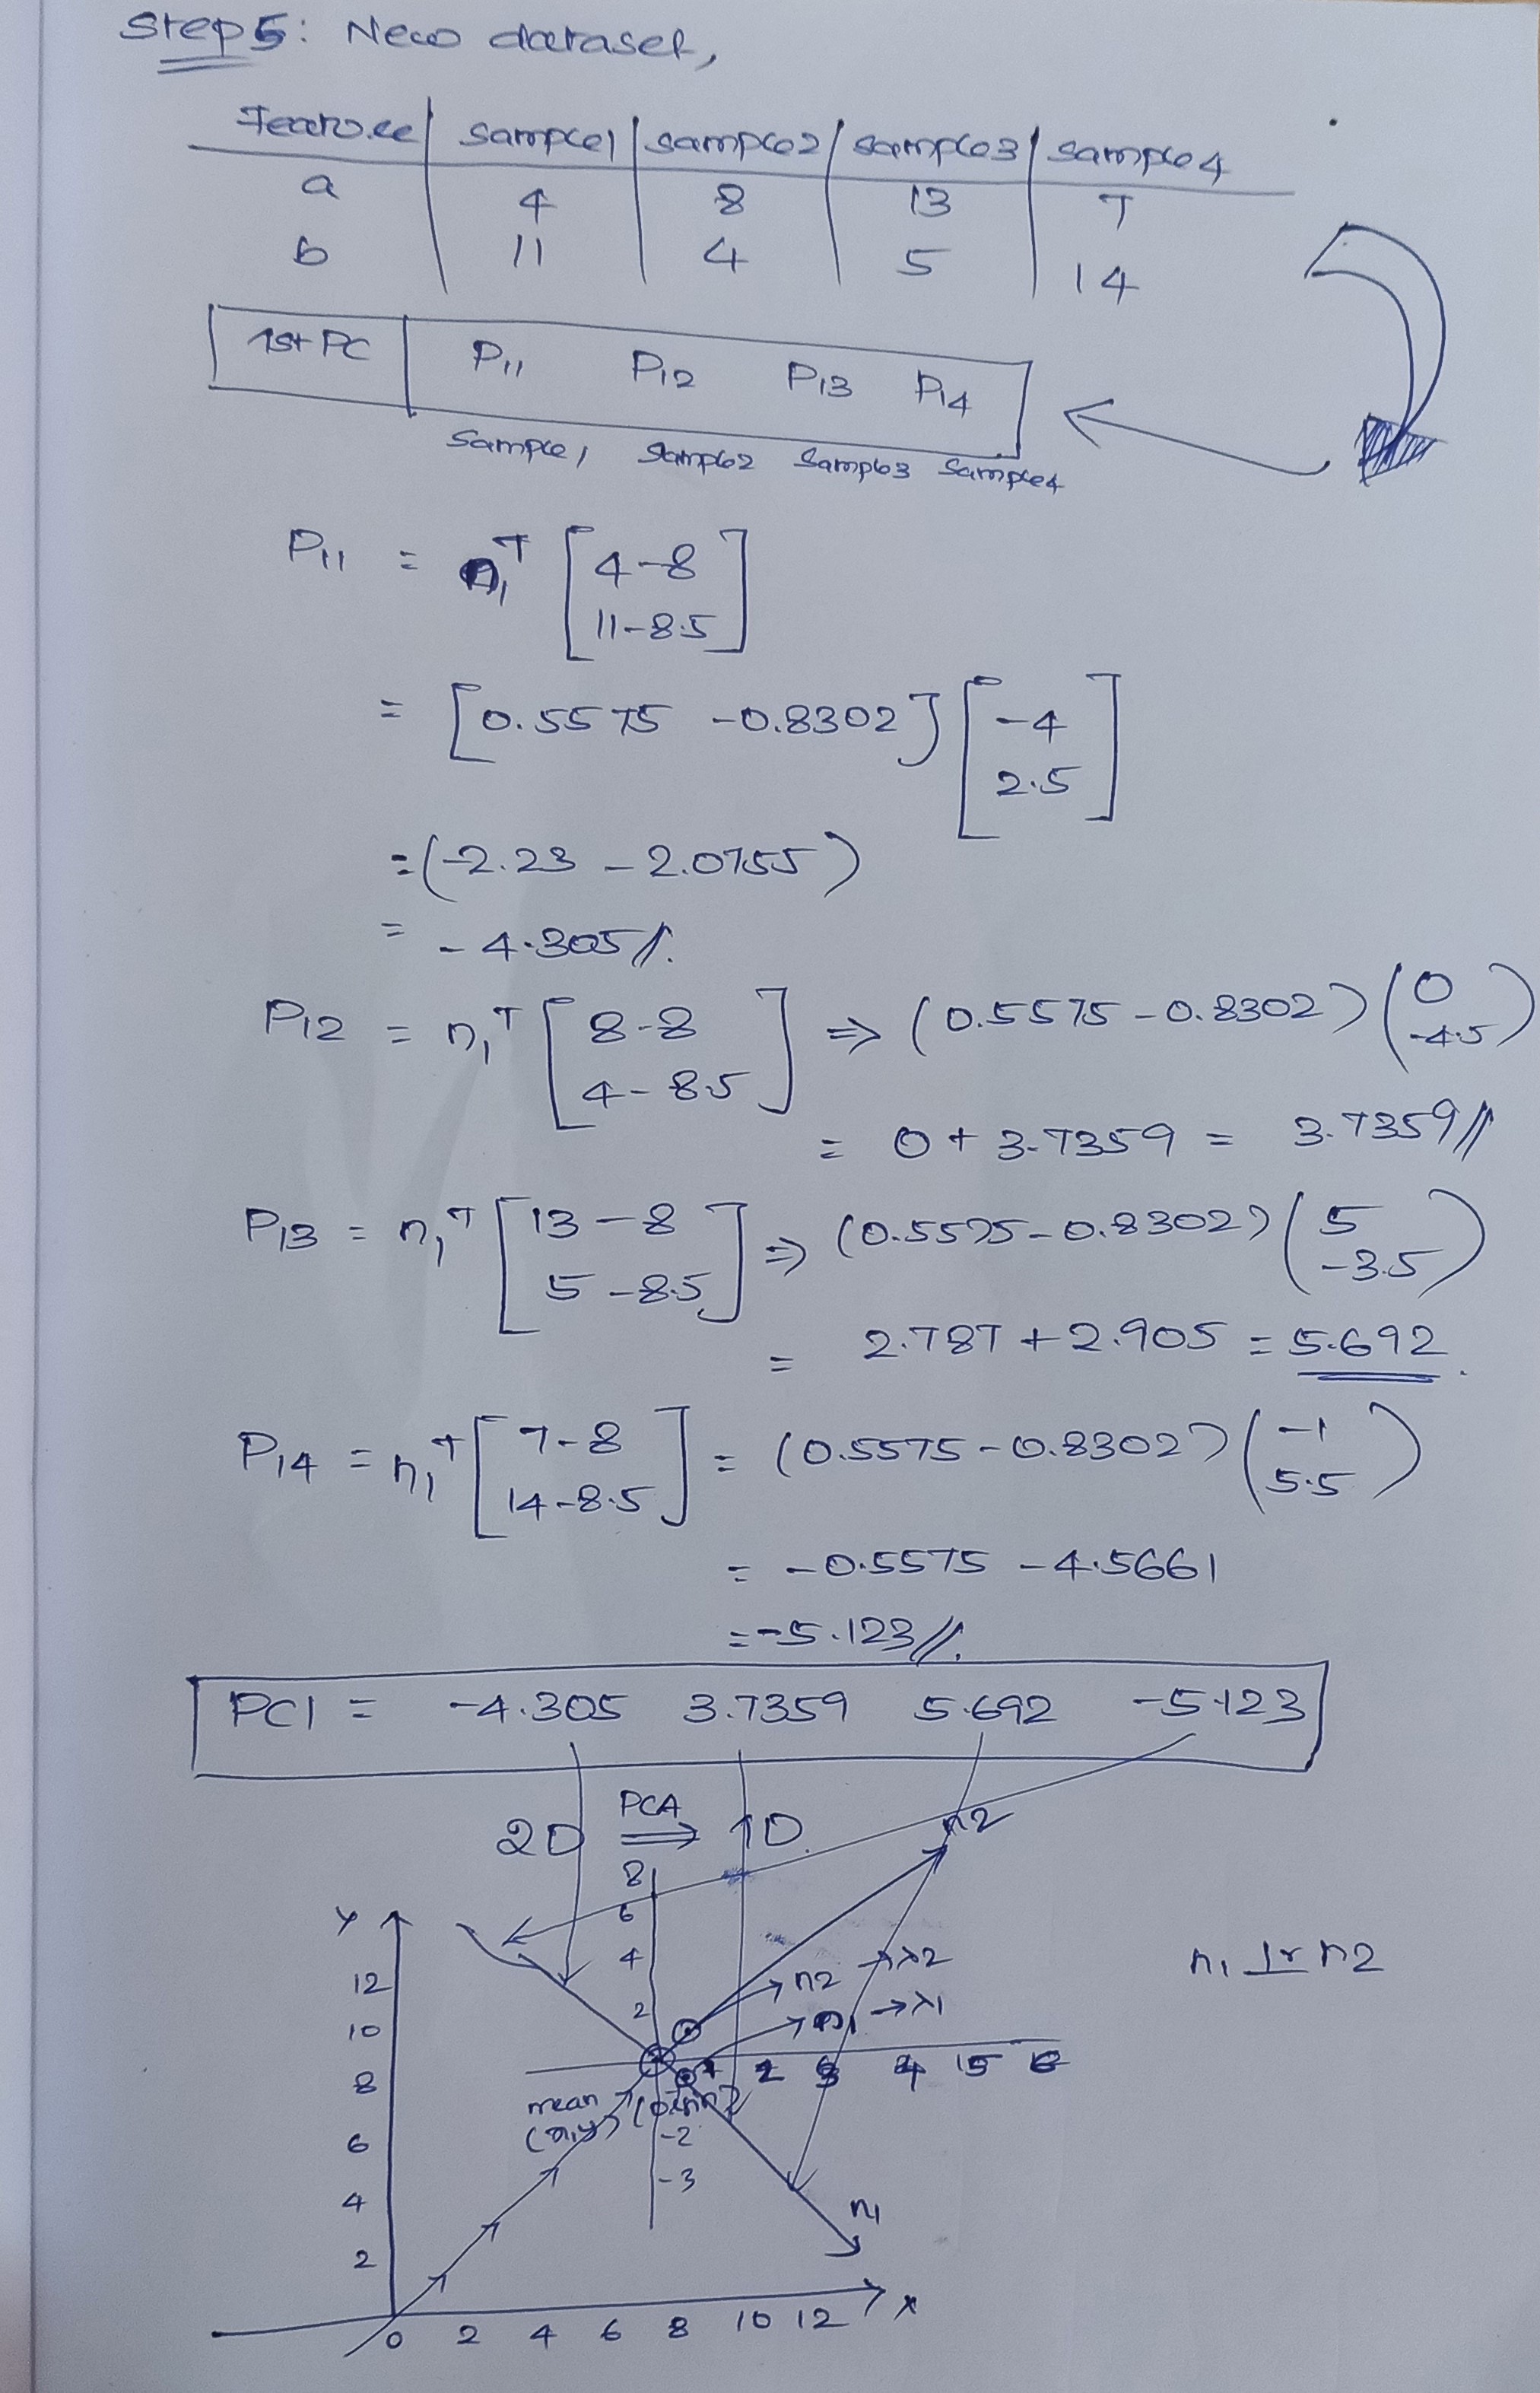 Step 5: New dataset,
Feature | sample1 | sample2 | sample3 | sample4
a 4 8 13 7
b 11 4 5 14
1st PC | P11 P12 P13 P14
Sample1 Sample2 Sample3 Sample4
P11 = n1^T [4-8
11-8.5]
= [0.5575 -0.8302] [-4
2.5]
= (-2.23 - 2.0755)
= -4.305//.
P12 = n1^T [8-8
4-8.5] ⇒ (0.5575 -0.8302) (0
-4.5)
= 0 + 3.7359 = 3.7359//
P13 = n1^T [13-8
5-8.5] ⇒ (0.5575 -0.8302) (5
-3.5)
= 2.787 + 2.905 = 5.692.
P14 = n1^T [7-8
14-8.5] = (0.5575 -0.8302) (-1
5.5)
= -0.5575 - 4.5661
= -5.123//.
PC1 = -4.305 3.7359 5.692 -5.123
2D PCA ⇒ 1D.
n2
8
6
4
2
n2 → λ2
n1 → λ1
n1 ⊥r n2
1 2 3 4 5 6
mean
(x,y)
-2
-3
n1
Y
12
10
8
6
4
2
0 2 4 6 8 10 12 x